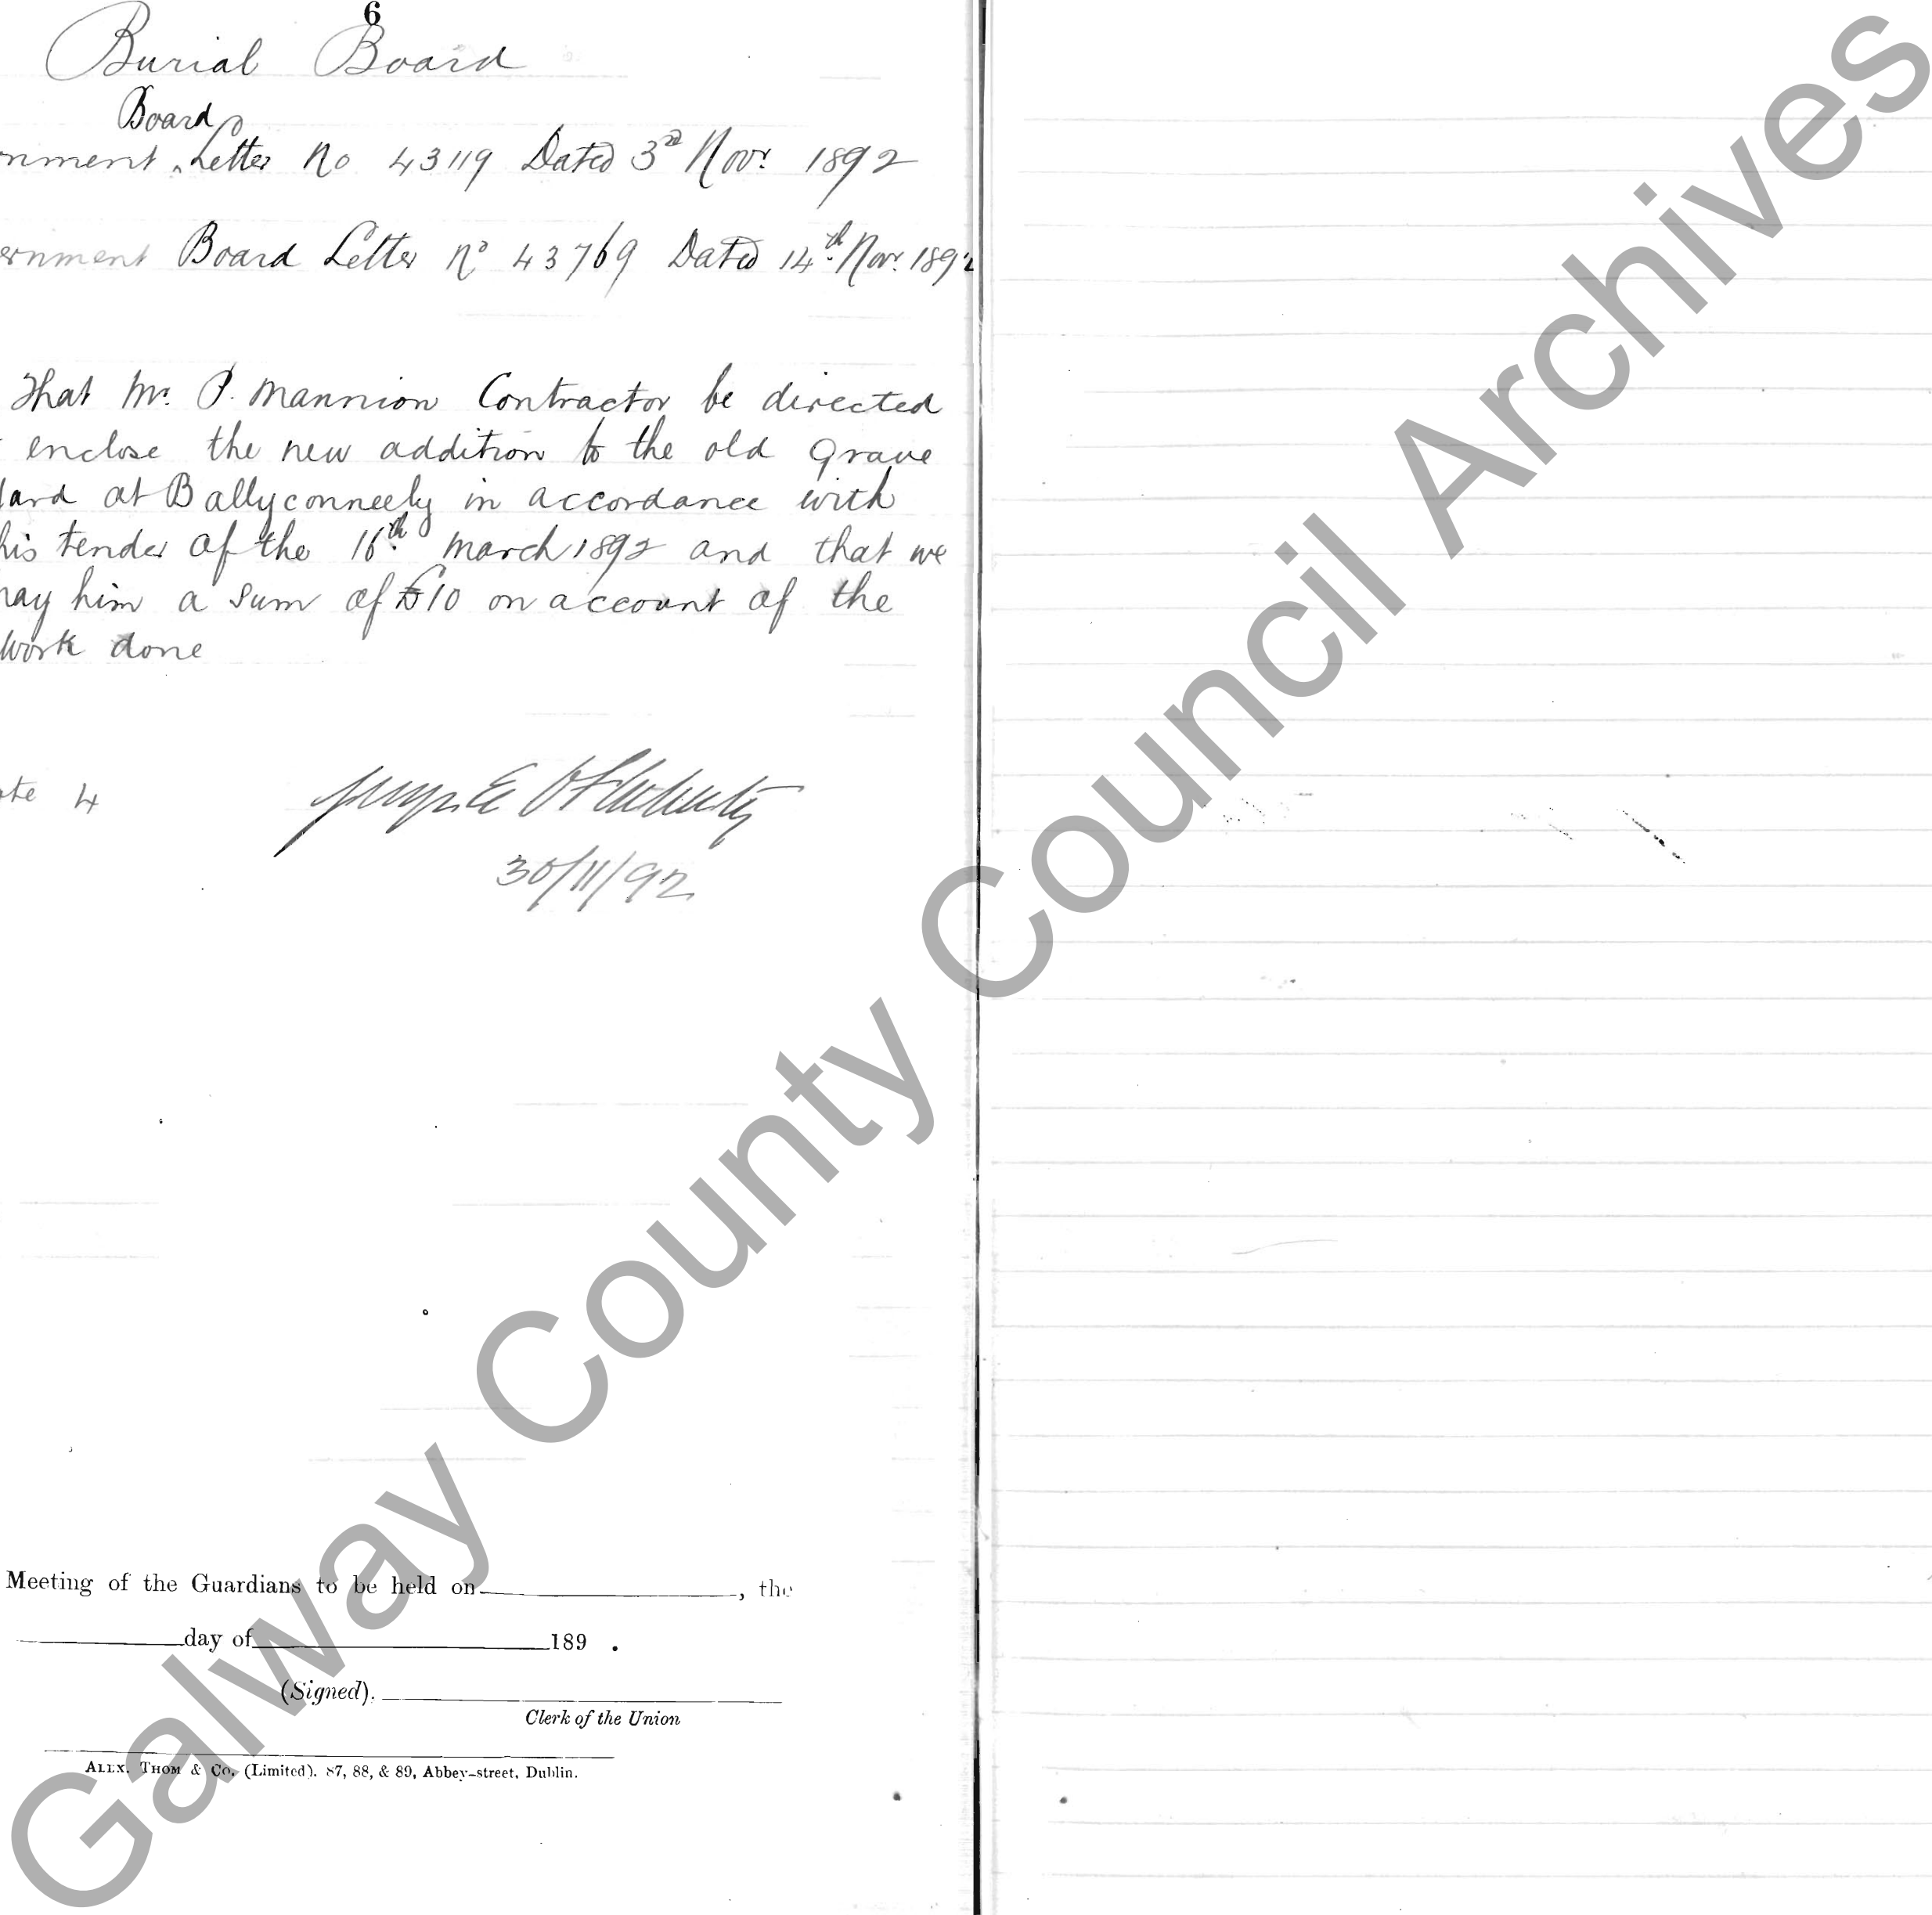 6
Burial Board
Board
nment Letter No 43119 Dated 3rd Novr. 1892
ernment Board Letter No 43769 Dated 14th Novr. 1892
That Mr. P. Mannion Contractor be directed
enclose the new addition to the old Grave
yard at Ballyconneely in accordance with
his tender of the 16th March 1892 and that we
pay him a sum of £10 on account of the
work done
4
30/11/92
Meeting of the Guardians to be held on , the
day of 189 .
(Signed).
Clerk of the Union
ALEX. THOM & Co. (Limited). 87, 88, & 89, Abbey-street, Dublin.
Galway County Council Archives